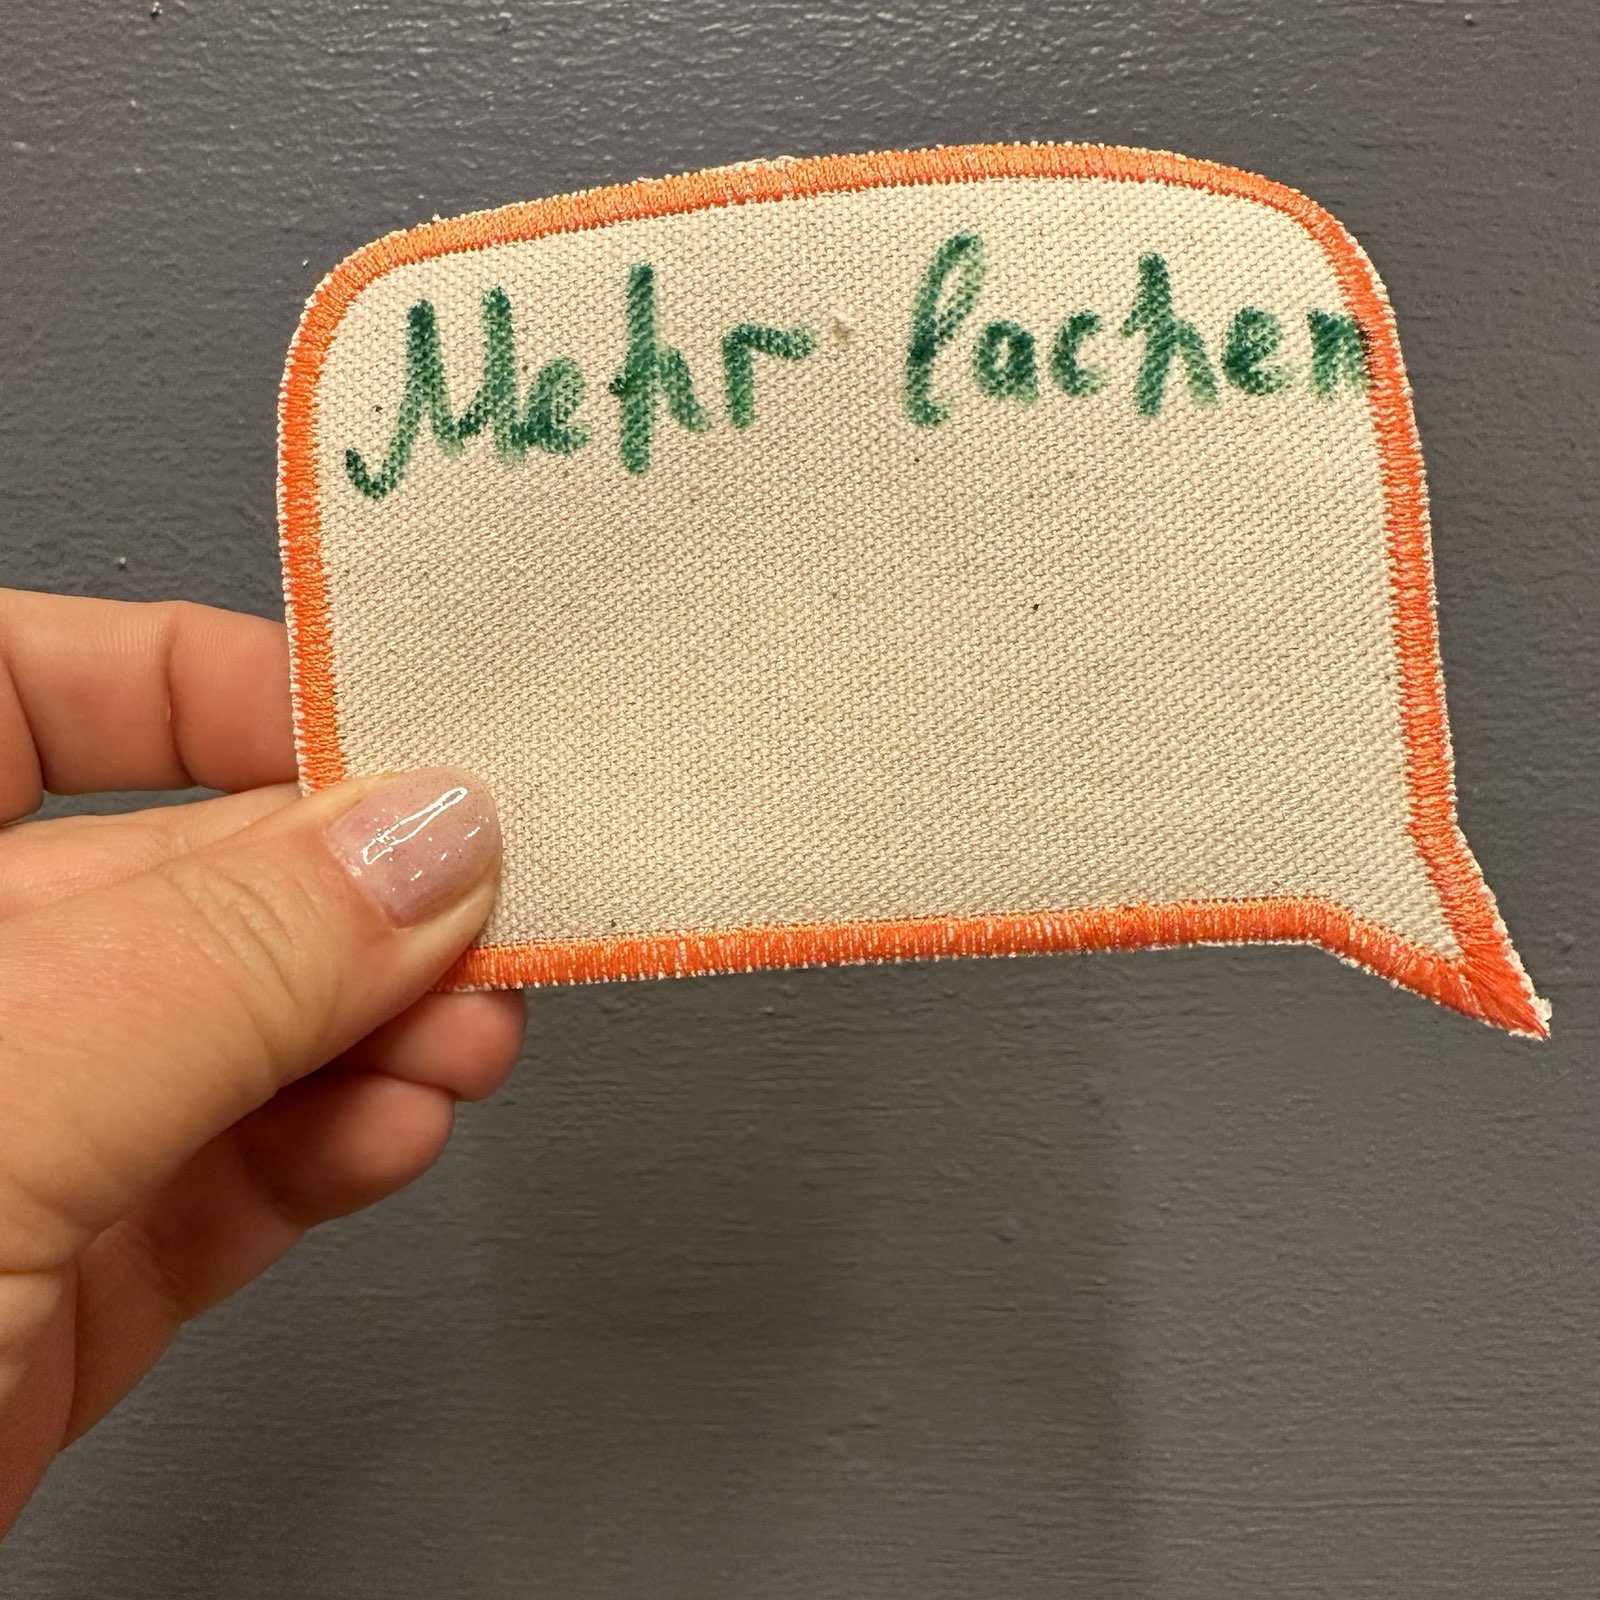 Mehr lachen